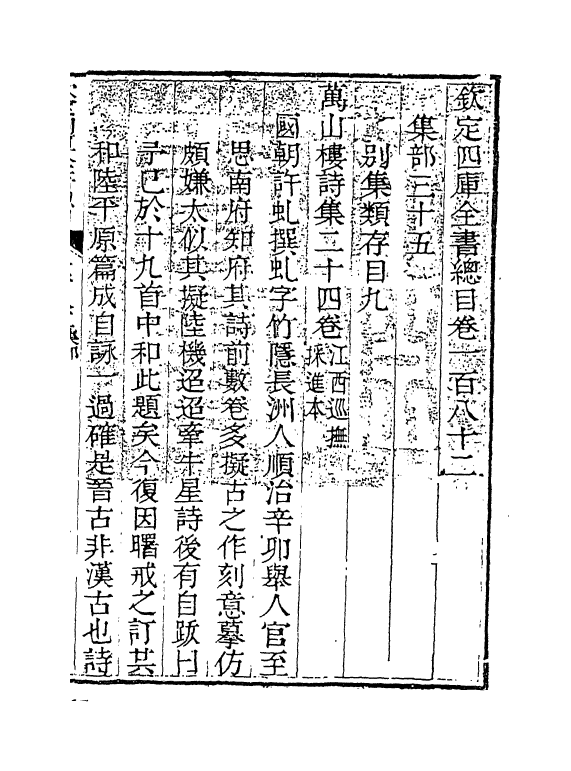 欽定四庫全書總目卷一百八十二
集部三十五
別集類存目九
萬山樓詩集二十四卷江西巡撫採進本
國朝許虬撰虬字竹隱長洲人順治辛卯舉人官至
思南府知府其詩前數卷多擬古之作刻意摹仿
頗嫌太似其擬陸機迢迢牽牛星詩後有自跋曰
予已於十九首中和此題矣今復因曙戒之訂共
和陸平原篇成自詠一過確是晉古非漢古也詩